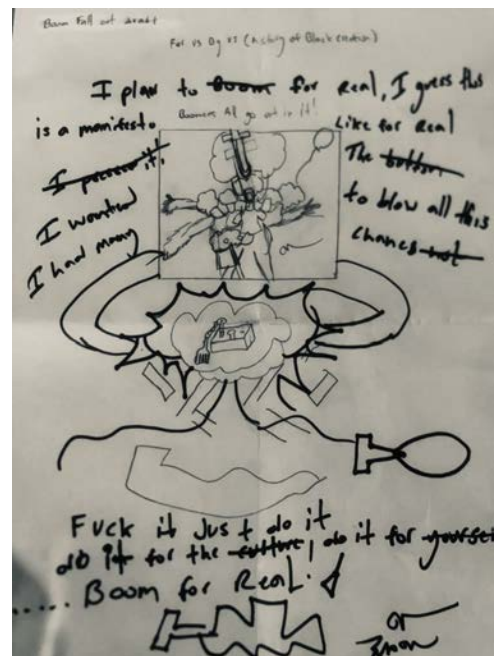 Boom Fall out draft
For us By us (history of Black creation)
I plan to Boom for Real, I guess this
is a manifesto. Boomers All go out in it! Like for Real
I pressed it! The button
I wanted to blow all this
I had many chances not
or
Fuck it Just do it
do it for the culture, do it for yourself
..... Boom for Real.
or